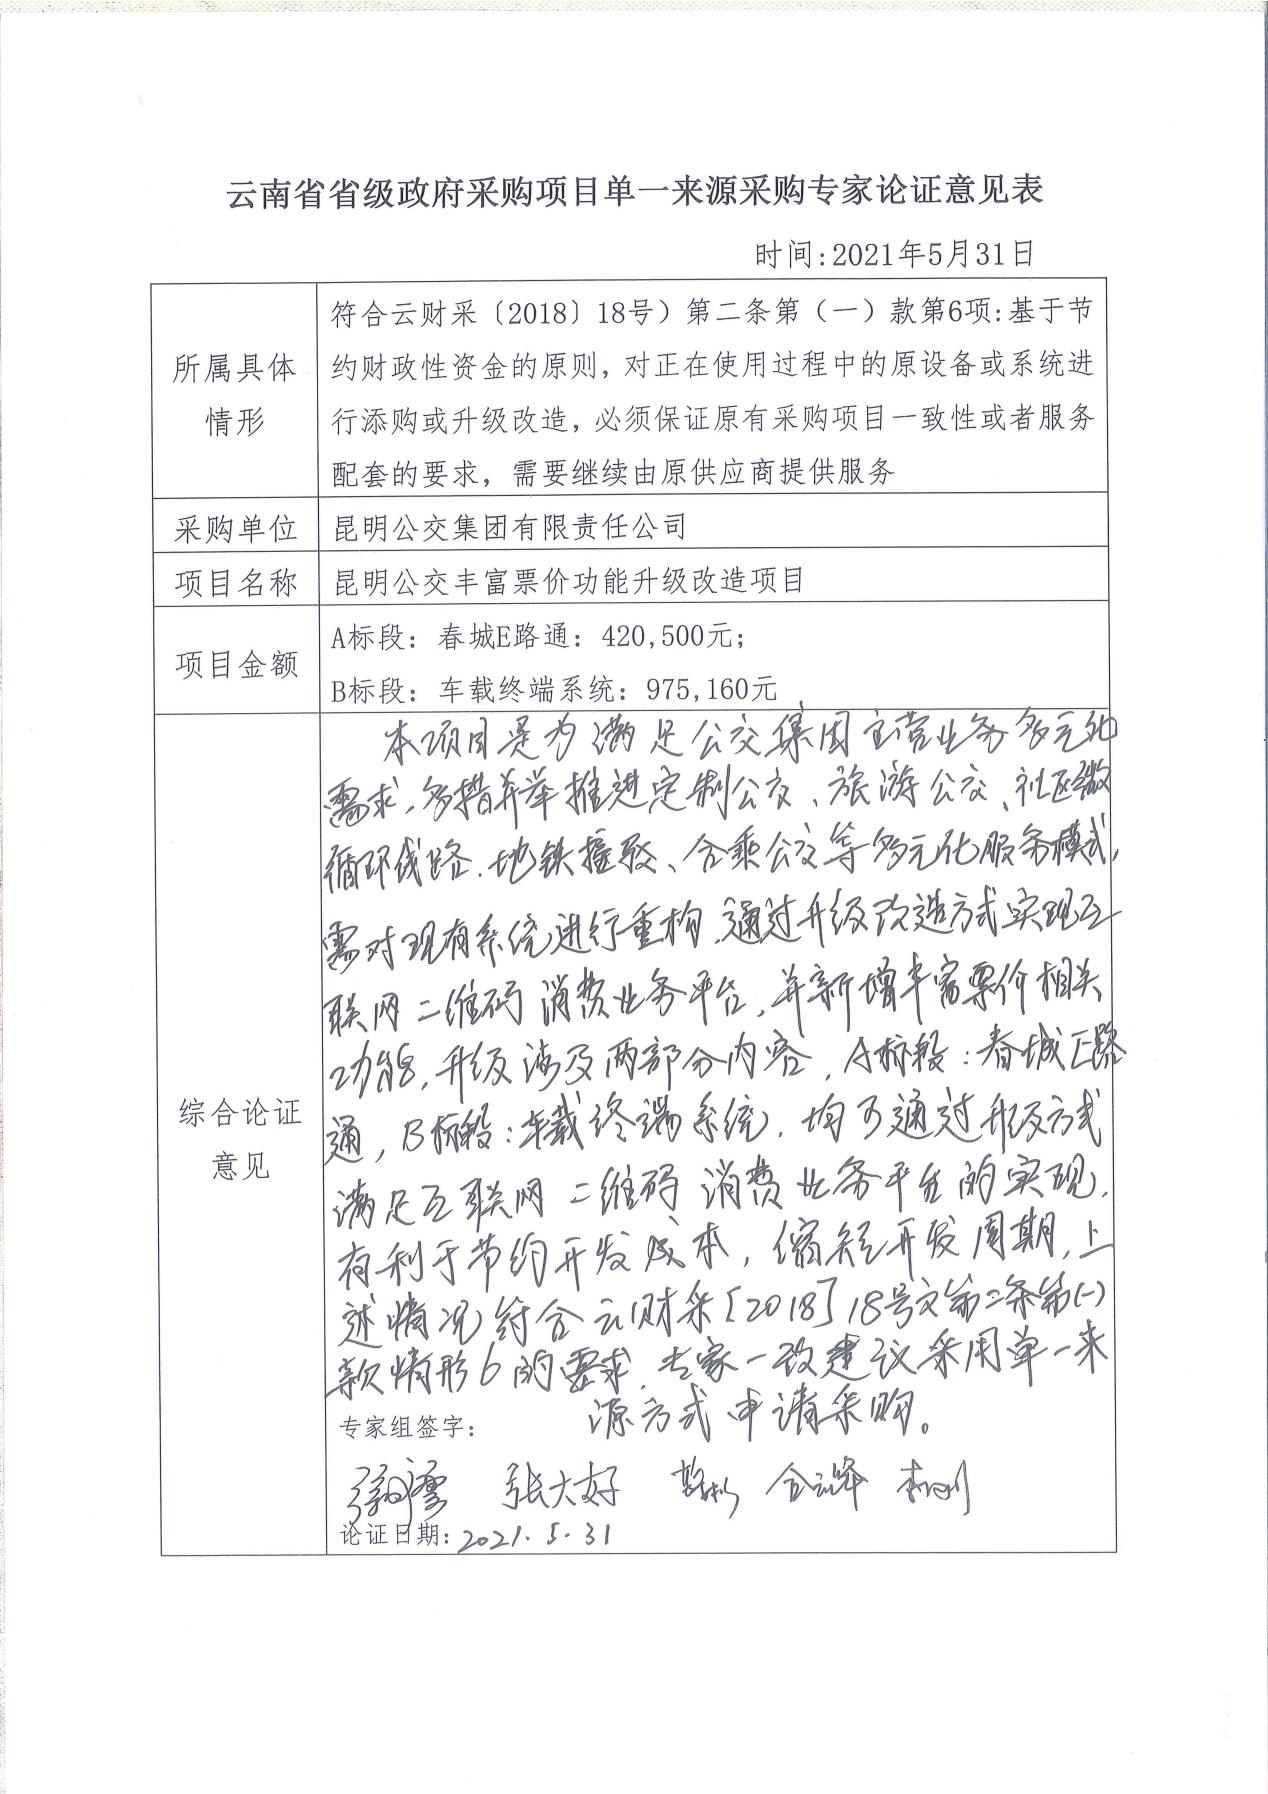 云南省省级政府采购项目单一来源采购专家论证意见表
时间:2021年5月31日
所属具体
情形
符合云财采〔2018〕18号）第二条第（一）款第6项:基于节
约财政性资金的原则，对正在使用过程中的原设备或系统进
行添购或升级改造，必须保证原有采购项目一致性或者服务
配套的要求，需要继续由原供应商提供服务
采购单位
昆明公交集团有限责任公司
项目名称
昆明公交丰富票价功能升级改造项目
项目金额
A标段：春城E路通：420,500元；
B标段：车载终端系统：975,160元
综合论证
意见
本项目是为满足公交集团主营业务多元化
需求，多措并举推进定制公交、旅游公交、社区微
循环线路、地铁接驳、合乘公交等多元化服务模式，
需对现有系统进行重构，通过升级改造方式实现互
联网二维码消费业务平台，并新增丰富票价相关
功能，升级涉及两部分内容，A标段：春城E路
通，B标段：车载终端系统，均可通过升级方式
满足互联网二维码消费业务平台的实现，
有利于节约开发成本，缩短开发周期，上
述情况符合云财采[2018]18号文第二条第(一)
款情形6的要求，专家一致建议采用单一来
源方式申请采购。
专家组签字：
张大好
论证日期：2021.5.31